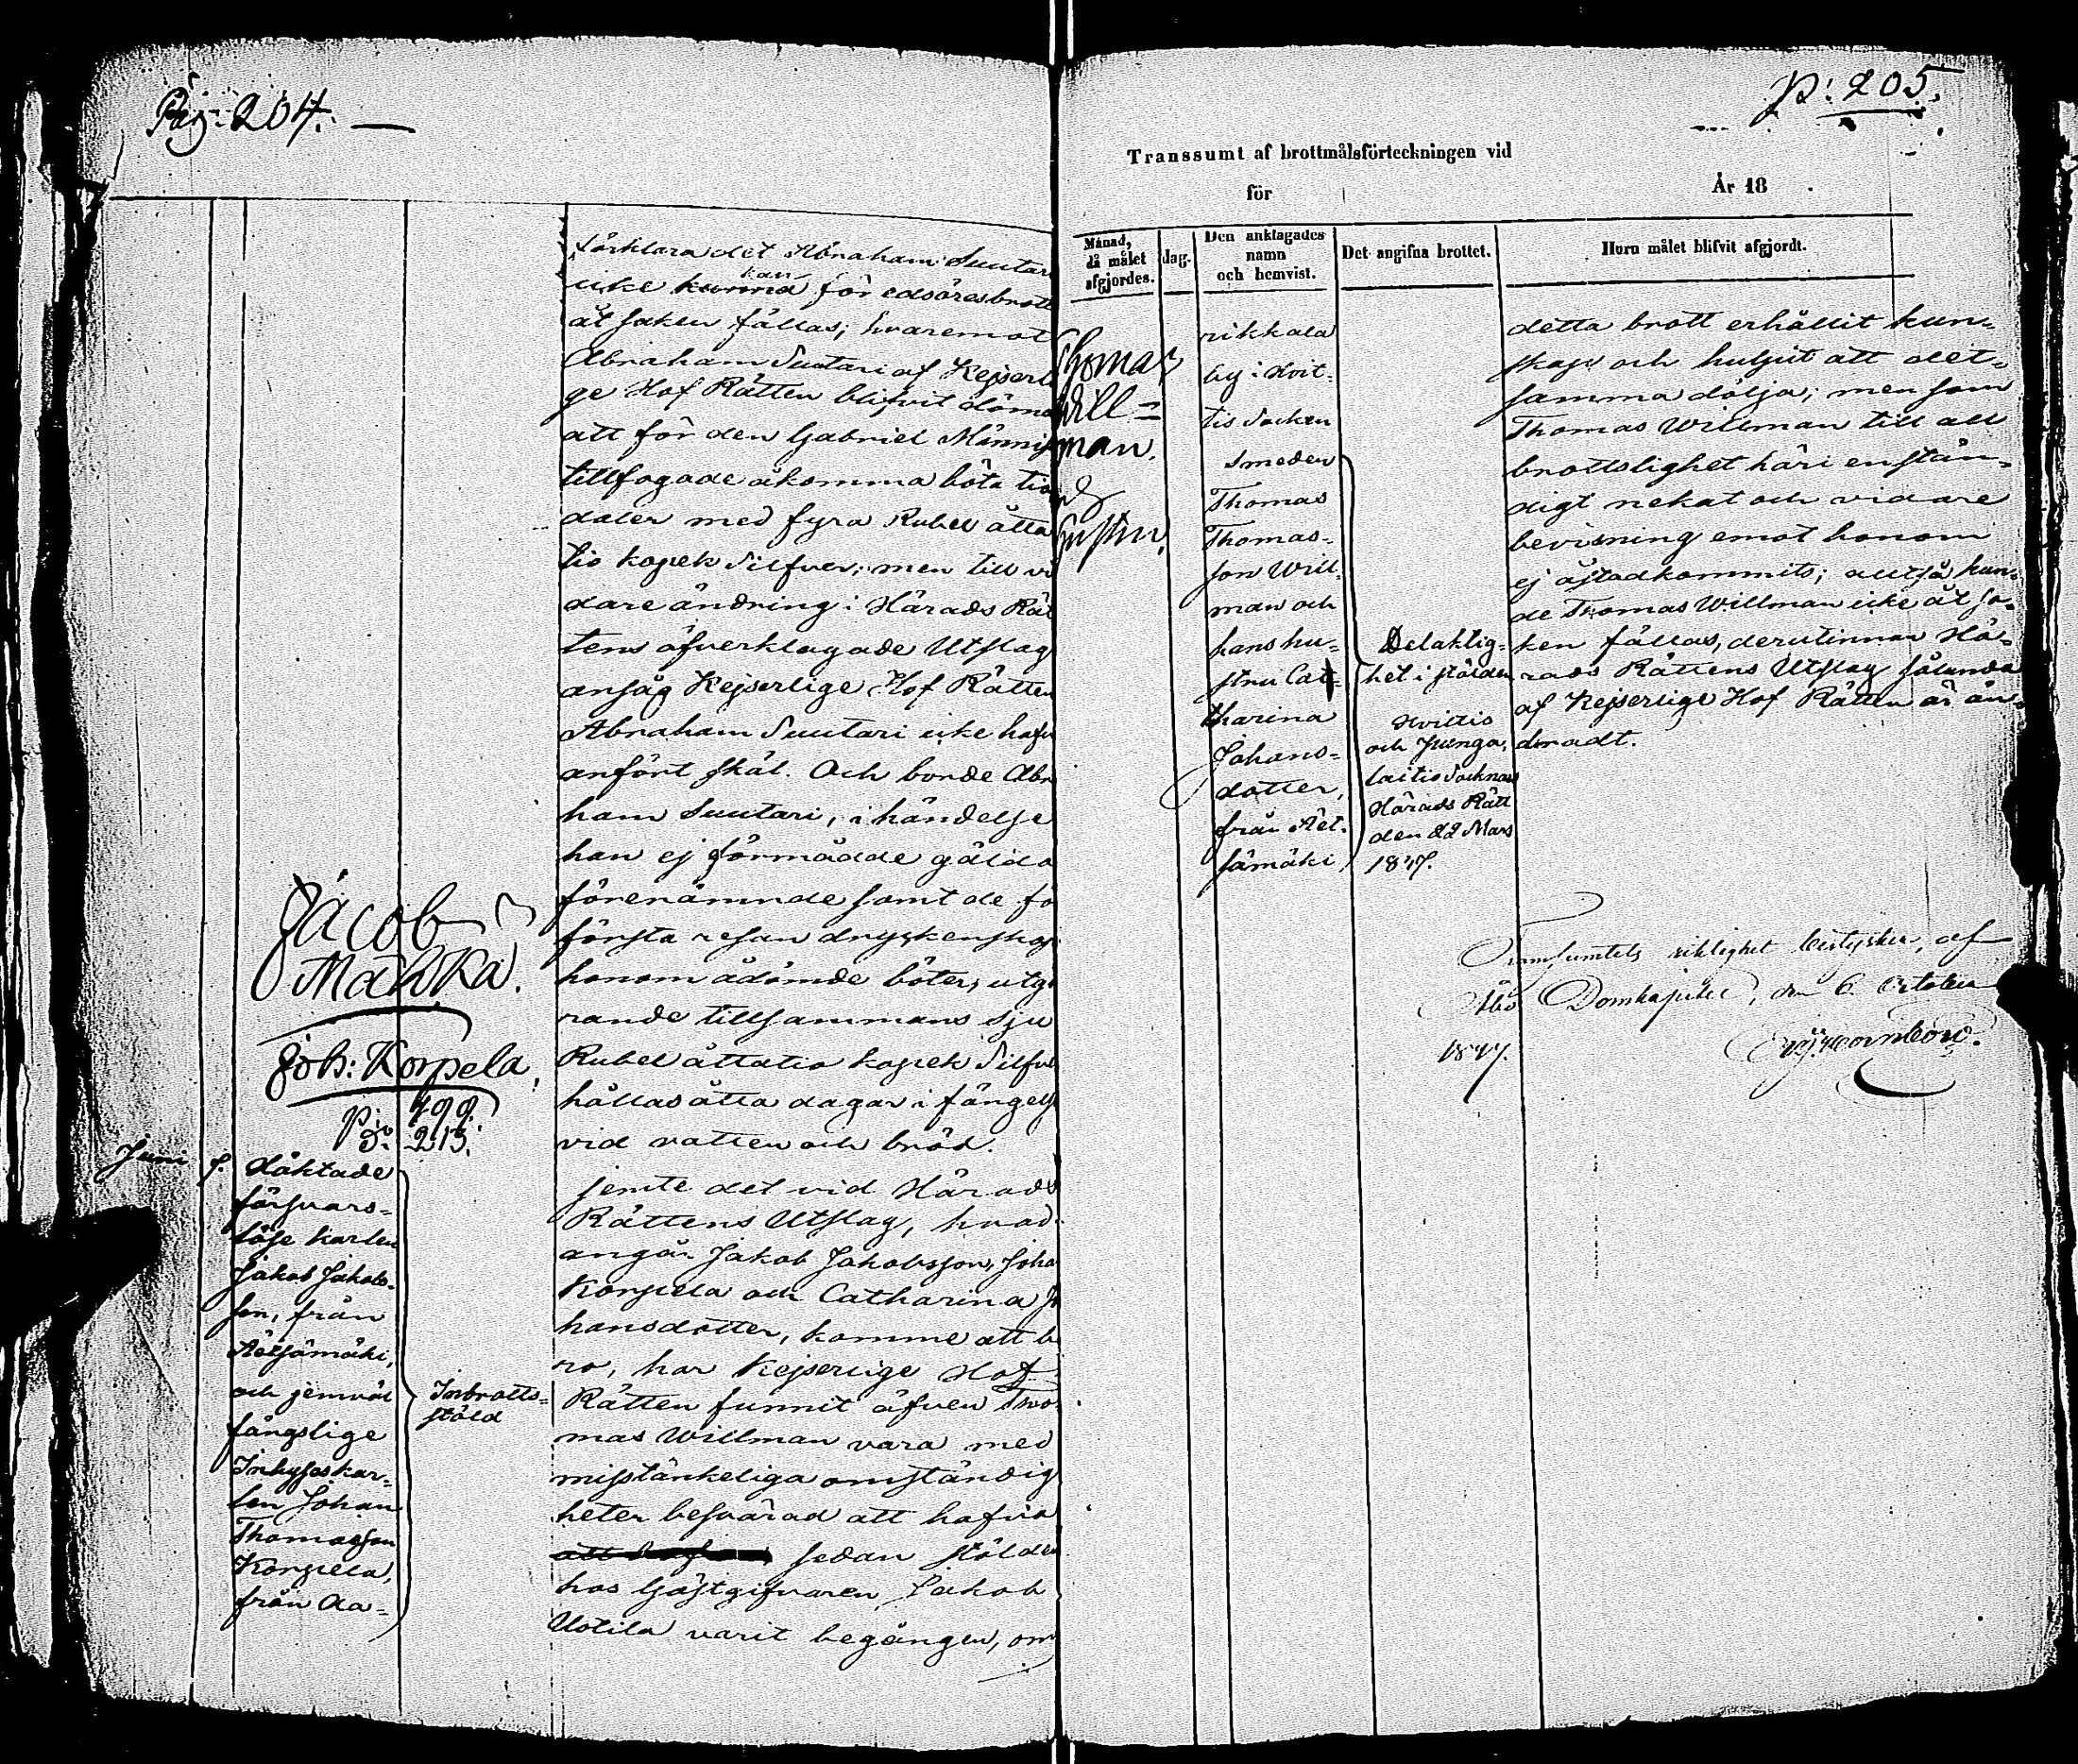 Pag: 204.
förklara det Abraham Suutari
icke kunna kan för edsöresbrott
åt saken fällas; hvaremot
Abraham Suutari af Kejserli
ge Hof Rätten blifvit dömd
att för den Gabriel Männis
tillfogade åkomma böta tio
daler med fyra Rubel åtta
tio kopek Silfver; men till vi
dare ändring i Härads Rät
tens öfverklagade Utslag
ansåg Kejserlige Hof Rätten
Abraham Suutari icke hafv
anfört skäl. Och borde Abr
ham Suutari, i händelse
han ej förmådde gälda
förenämnde samt de fö
första resan dryckenskap
honom ådömde böter, utgö
rande tillsammans Sju
Rubel åttatio kopek Silfv
hållas åtta dagar i fängelse
vid vatten och bröd.
Jacob
Mahka.
Joh: Korpela.
p: 499.
D:o 213.
Juni
häktade
försvars-
löse karlen
Jakob Jakobs-
son, från
Äetsämäki,
och jemväl
fängslige
Inhyseskar-
len Johan
Thomasson
Korpela,
från Aa-
Inbrotts-
stöld
Jemte det vid Härads
Rättens Utslag, hvad
angår Jakob Jakobsson, Joha
Korpela och Catharina Jo
hansdotter, komme att be
ro, har Kejserlige Hof
Rätten funnit äfven Tho-
mas Willman vara med
misstänkeliga omständig
heter besvärad att hafva
sedan stölden
hos Gästgifvaren Jakob
Uotila varit begången, om
p: 205.
Transsumt af brottmålsförteckningen vid
för År 18 .
Månad, då målet afgjordes.
dag.
Den anklagades namn och hemvist.
Det angifna brottet.
Huru målet blifvit afgjordt.
Thomas
Will=
man.
&
hustru.
rikkala
by i Hvit-
tis Socken
Smeden
Thomas
Thomas-
son Will-
man och
hans hu-
stru Cat-
harina
Johans-
dotter,
från Äet-
sämäki
Delaktig-
het i stölden
Hvittis
och Punga-
laitio Socknars
Härads Rätt
den 22 Mars
1847.
detta brott erhållit kun-
skap och hulpit att det-
samma dölja; men som
Thomas Willman till all
brottslighet häri enstän-
digt nekat och vidare
bevisning emot honom
ej åstadkommits; altså kun-
de Thomas Willman icke åt sa-
ken fällas, derutinnan Hä-
rads Rättens Utslag sålunda
af Kejserlige Hof Rätten är än-
dradt.
Transsumtets riktighet bestyrker, af
Åbo Domkapitel, den 6. October
1847.